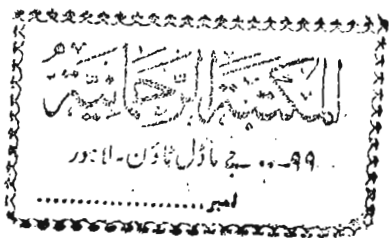 المكتبة الرحمانية
۹۹-۰۰ جے ماڈل ٹاؤن۔ لاہور
نمبر....................